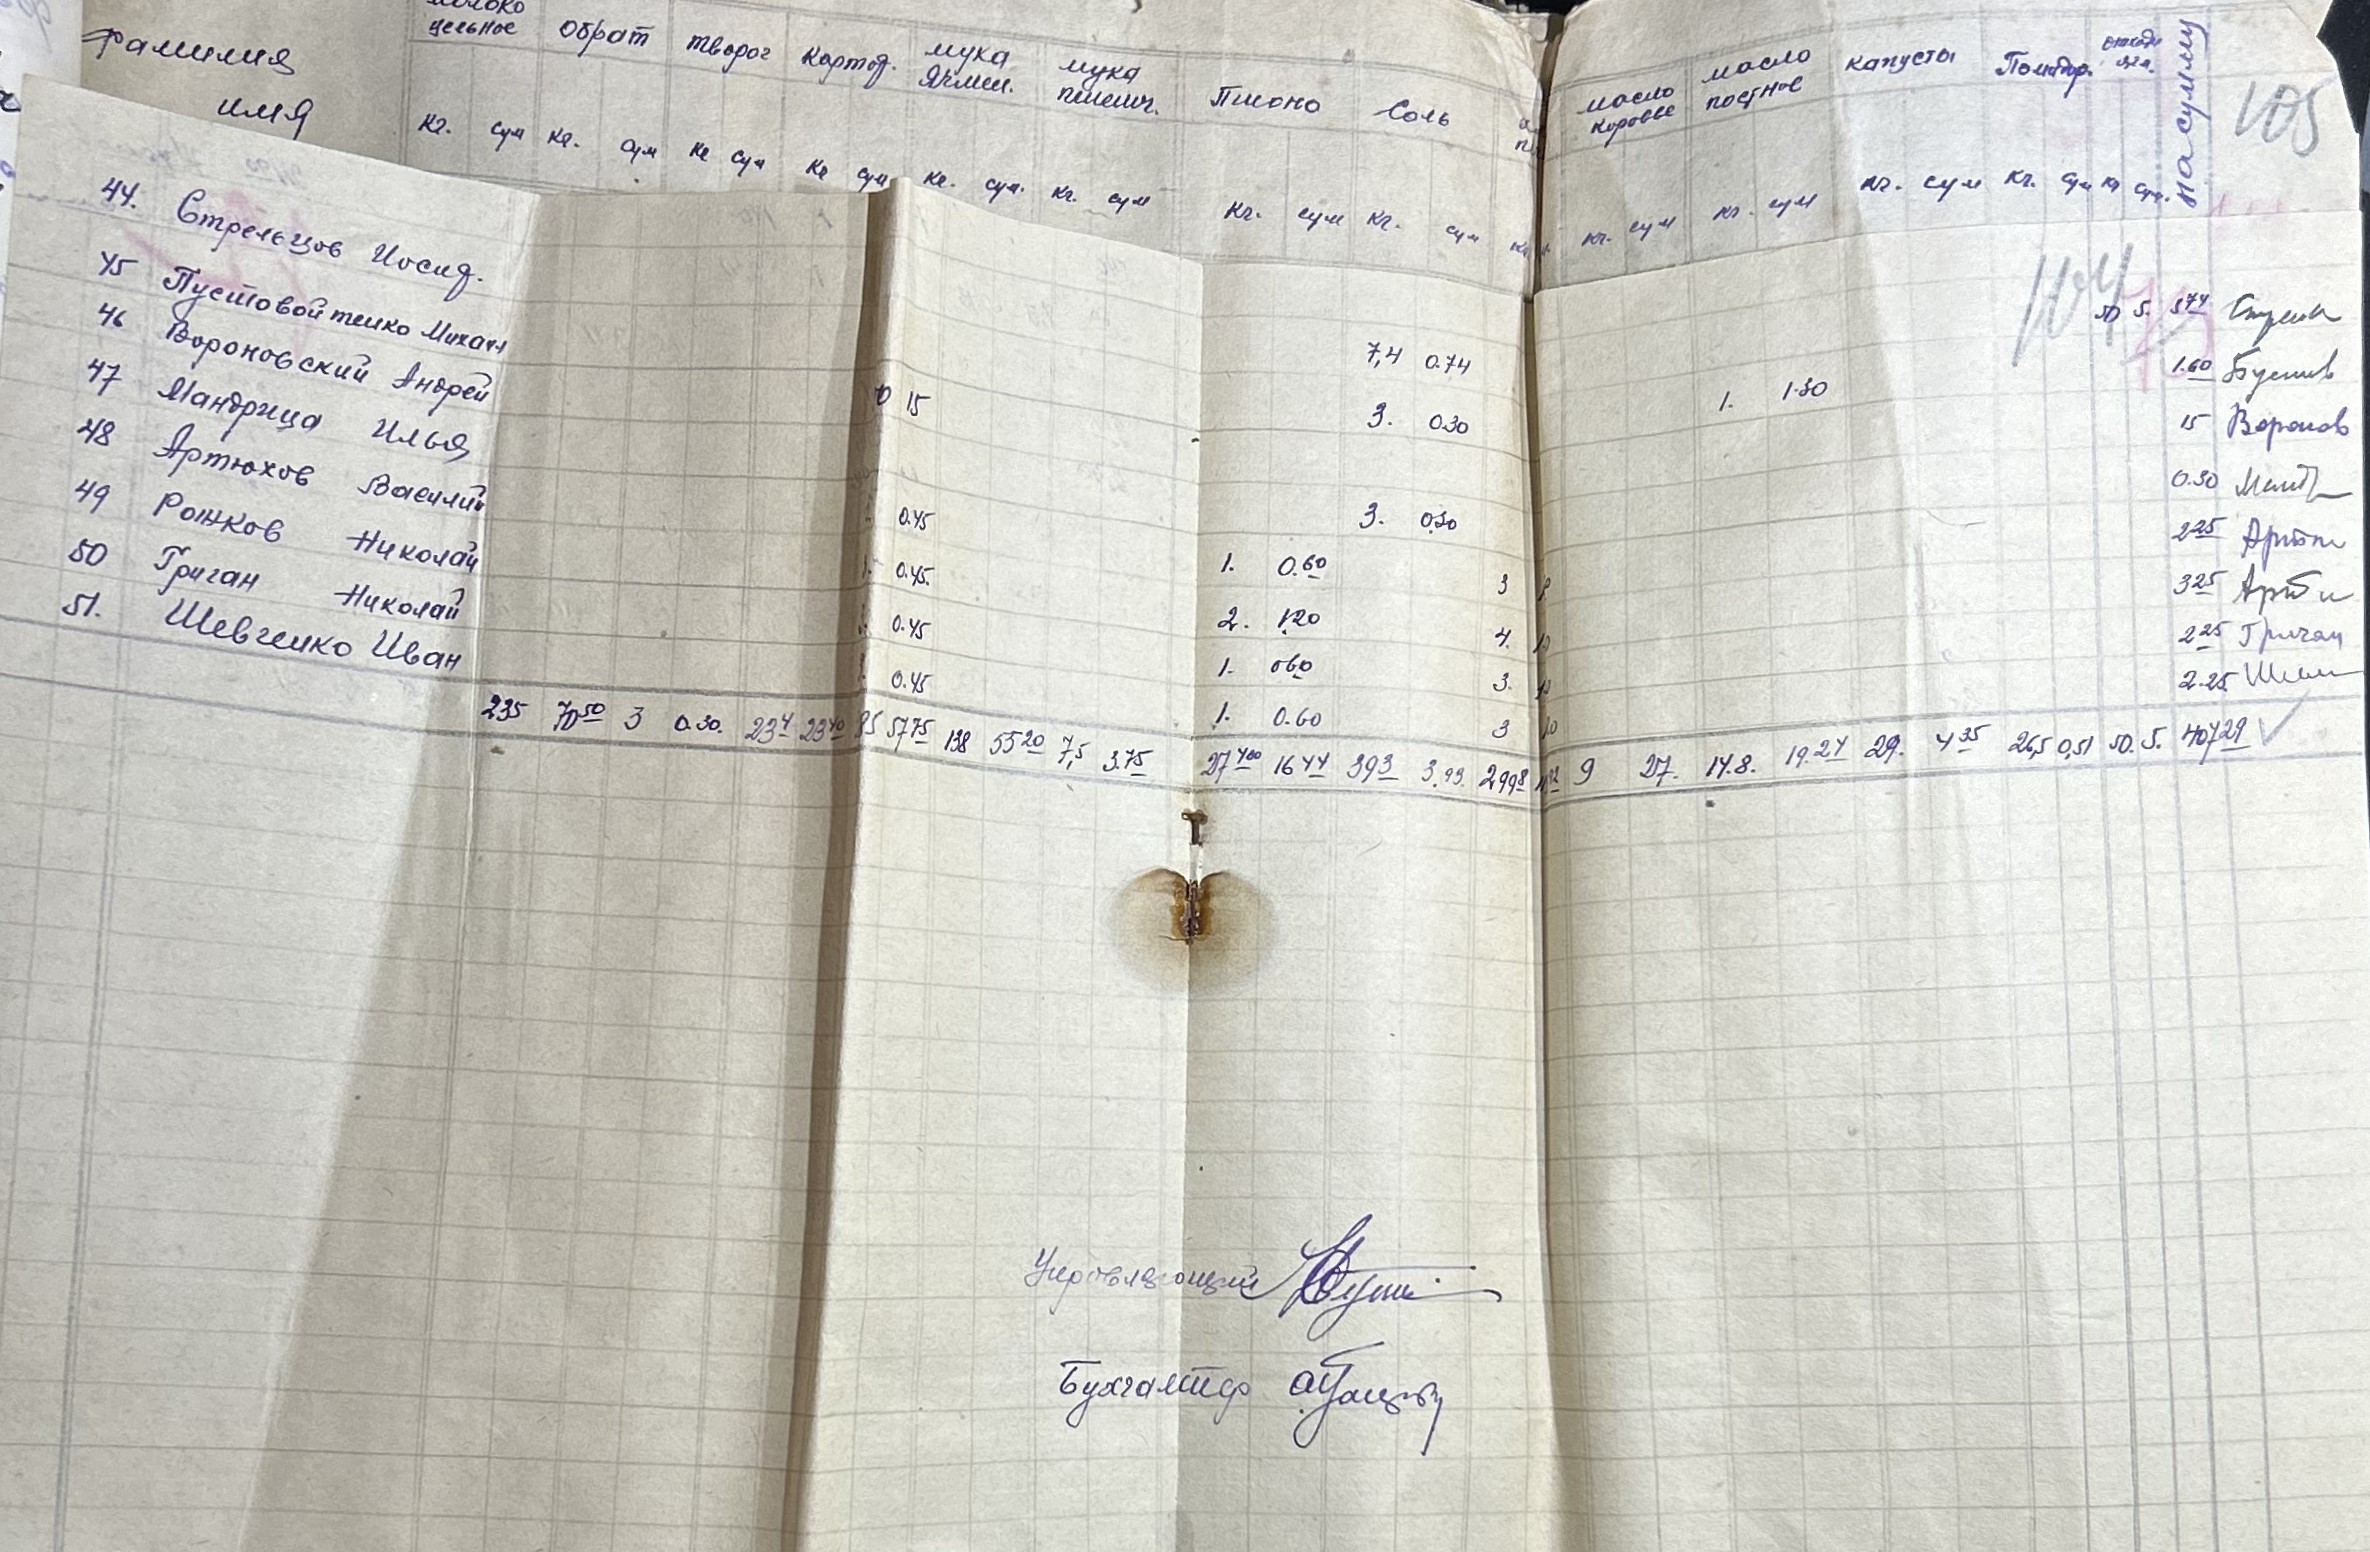 Фамилия
имя
молоко цельное обрат творог картоф. мука ячмен. мука пшенич. Пшоно Соль масло коровье масло постное капусты Помидор. на сумму 105
кг. сум кг. сум кг сум кг сум кг. сум. кг. сум кг. сум кг. сум кг. сум кг. сум кг. сум кг. сум кг сум.
104
44. Стрельцов Иосиф. 7,4 0.74 50 5. 5 74
45 Пустовойтенко Михаил 3. 0.30 1. 1.30 1.60
46 Вороновский Андрей 15 15 Воронов
47 Мандрица Илья 3. 0.30 0.30
48 Артюхов Василий 0.45 1. 0.60 3 2 25
49 Рожков Николай 0.45. 2. 1.20 4. 3 25
50 Григан Николай 0.45 1. 0.60 3. 2 25 Григан
51. Шевченко Иван 0.45 1. 0.60 3 2.25
235 70 50 3 0.30. 23 4 23 40 57 75 138 55 20 7,5 3.75 27 400 16 44 39 3 3.93 299 8 9 27. 14.8. 19.24 29. 4 35 26,5 0,51 50. 5. 407 29
Управляющий
Бухгалтер